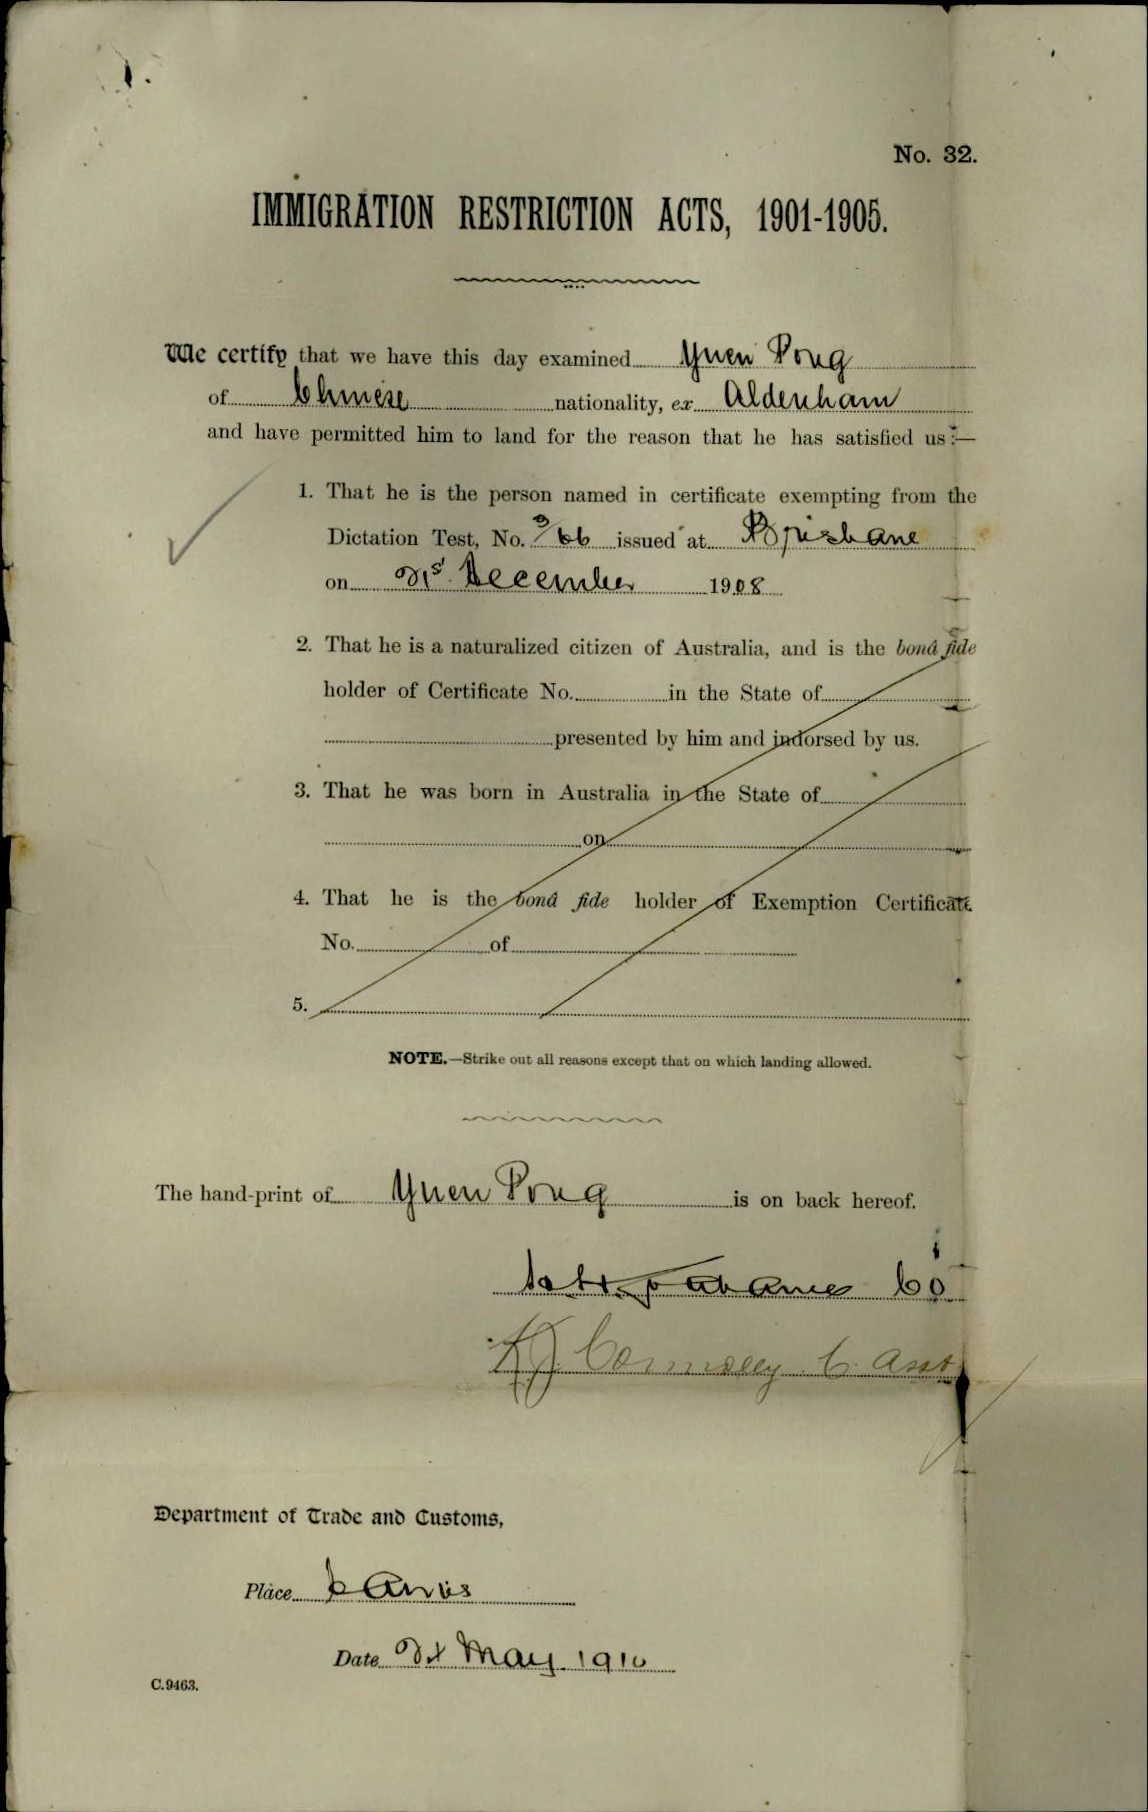 No. 32.
IMMIGRATION RESTRICTION ACTS, 1901-1905.
We certify that we have this day examined Yuen Pong
of Chinese nationality, ex Aldenham
and have permitted him to land for the reason that he has satisfied us:—
1. That he is the person named in certificate exempting from the
Dictation Test, No. 9/66 issued at Brisbane
on 21st December 1908
2. That he is a naturalized citizen of Australia, and is the bonâ fide
holder of Certificate No. in the State of
presented by him and indorsed by us.
3. That he was born in Australia in the State of
on
4. That he is the bonâ fide holder of Exemption Certificate
No. of
5.
NOTE.—Strike out all reasons except that on which landing allowed.
The hand-print of Yuen Pong is on back hereof.
Co
Connolly C. Asst
Department of Trade and Customs,
Place Cairns
Date May 1910
C.9463.